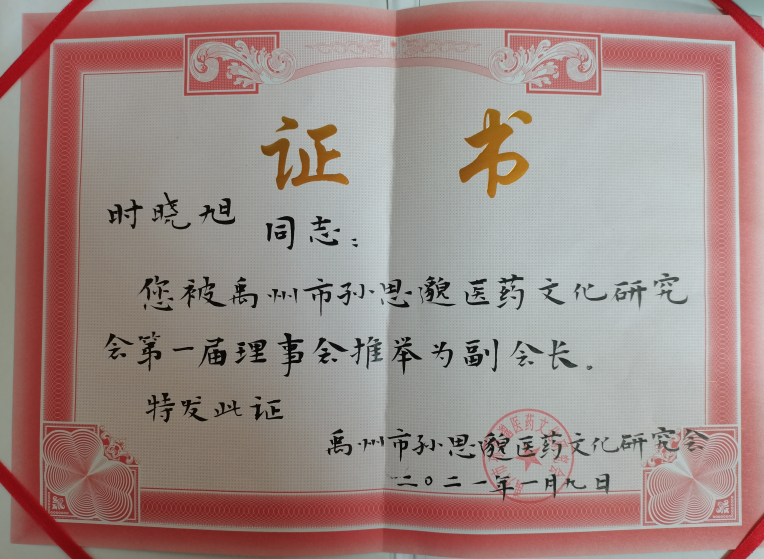 证书
时晓旭 同志：
您被禹州市孙思邈医药文化研究
会第一届理事会推举为副会长。
特发此证
禹州市孙思邈医药文化研究会
二〇二一年一月九日